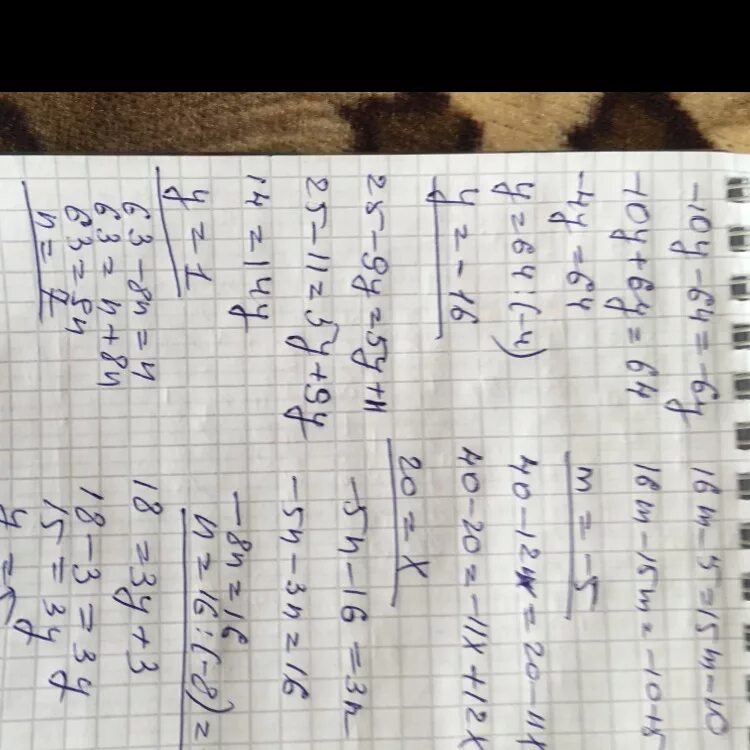 -10y-64=-6y
-10y+6y=64
-4y=64
y=64:(-4)
y=-16
25-9y=5y+11
25-11=5y+9y
14=14y
y=1
63-8n=n
63=n+8n
n=7
16m-5=15m-10
16m-15m=-10+5
m=-5
40-12x=20-11x
40-20=-11x+12x
20=x
-5n-16=3n
-5n-3n=16
-8n=16
n=16:(-8)=
18=3y+3
18-3=3y
15=3y
y=5